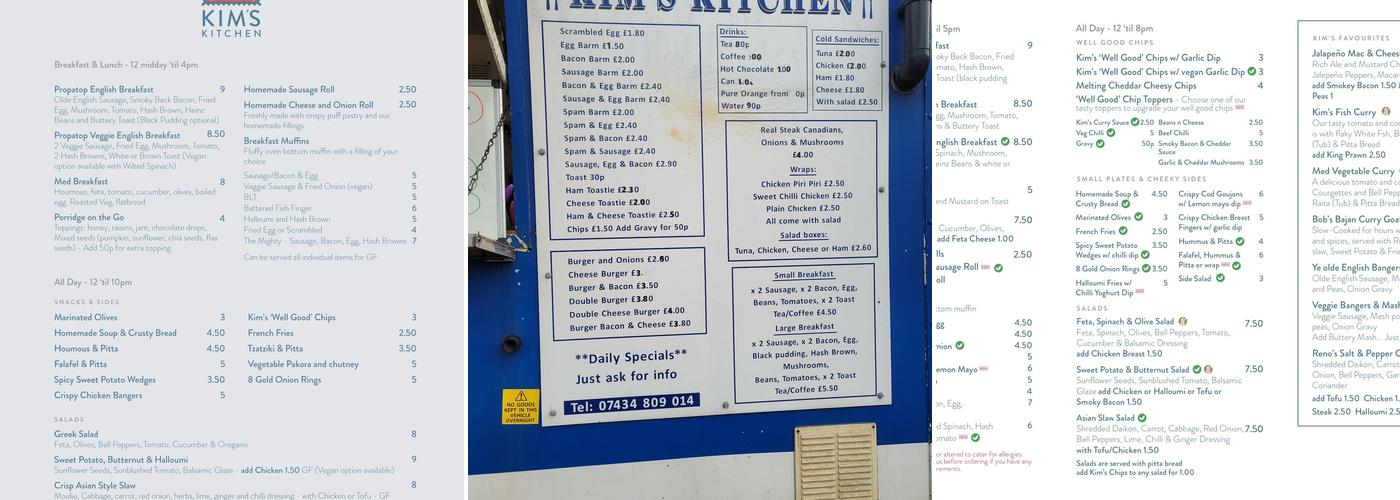 KIM'S
KITCHEN
Breakfast & Lunch - 12 midday 'til 4pm
Propatop English Breakfast 9
Olde English Sausage, Smoky Back Bacon, Fried
Egg, Mushroom, Tomato, Hash Brown, Heinz
Beans and Buttery Toast (Black Pudding optional)
Propatop Veggie English Breakfast 8.50
2 Veggie Sausage, Fried Egg, Mushroom, Tomato,
2 Hash Browns, White or Brown Toast (Vegan
option available with Wilted Spinach)
Med Breakfast 8
Houmous, feta, tomato, cucumber, olives, boiled
egg, Roasted Veg, flatbread
Porridge on the Go 4
Toppings: honey, raisins, jam, chocolate drops,
Mixed seeds (pumpkin, sunflower, chia seeds, flax
seeds) - Add 50p for extra topping
Homemade Sausage Roll 2.50
Homemade Cheese and Onion Roll 2.50
Freshly made with crispy puff pastry and our
homemade fillings
Breakfast Muffins
Fluffy oven bottom muffin with a filling of your
choice
Sausage/Bacon & Egg 5
Veggie Sausage & Fried Onion (vegan) 5
BLT 5
Battered Fish Finger 6
Halloumi and Hash Brown 5
Fried Egg or Scrambled 4
The Mighty - Sausage, Bacon, Egg, Hash Browns 7
Can be served all individual items for GF
All Day - 12 'til 10pm
SNACKS & SIDES
Marinated Olives 3
Homemade Soup & Crusty Bread 4.50
Houmous & Pitta 4.50
Falafel & Pitta 5
Spicy Sweet Potato Wedges 3.50
Crispy Chicken Bangers 5
Kim's 'Well Good' Chips 3
French Fries 2.50
Tzatiki & Pitta 3.50
Vegetable Pakora and chutney 5
8 Gold Onion Rings 5
SALADS
Greek Salad 8
Feta, Olives, Bell Peppers, Tomato, Cucumber & Oregano
Sweet Potato, Butternut & Halloumi 9
Sunflower Seeds, Sunblushed Tomato, Balsamic Glaze - add Chicken 1.50 GF (Vegan option available)
Crisp Asian Style Slaw 8
Moulie, Cabbage, carrot, red onion, herbs, lime, ginger and chilli dressing - with Chicken or Tofu - GF
KIM'S KITCHEN
Scrambled Egg £1.80
Egg Barm £1.50
Bacon Barm £2.00
Sausage Barm £2.00
Egg & Bacon Barm £2.40
Sausage & Egg Barm £2.40
Spam Barm £2.00
Spam & Egg £2.40
Spam & Bacon £2.40
Spam & Sausage £2.40
Sausage, Egg & Bacon £2.90
Toast 30p
Ham Toastie £2.30
Cheese Toastie £2.00
Ham & Cheese Toastie £2.50
Chips £1.50 Add Gravy for 50p
Burger and Onions £2.80
Cheese Burger £3.
Burger & Bacon £3.50
Double Burger £3.80
Double Cheese Burger £4.00
Burger Bacon & Cheese £3.80
**Daily Specials**
Just ask for info
Tel: 07434 809 014
NO GOODS
KEPT IN THIS
VEHICLE
OVERNIGHT
Drinks:
Tea 80p
Coffee :00
Hot Chocolate 1.00
Can 1.0
Pure Orange from 0p
Water 90p
Cold Sandwiches:
Tuna £2.00
Chicken £2.00
Ham £1.80
Cheese £1.80
With salad £2.50
Real Steak Canadians,
Onions & Mushrooms
£4.00
Wraps:
Chicken Piri Piri £2.50
Sweet Chilli Chicken £2.50
Plain Chicken £2.50
All come with salad
Salad boxes:
Tuna, Chicken, Cheese or Ham £2.60
Small Breakfast
x 2 Sausage, x 2 Bacon, Egg,
Beans, Tomatoes, x 2 Toast
Tea/Coffee £4.50
Large Breakfast
x 2 Sausage, x 2 Bacon, Egg,
Black pudding, Hash Brown,
Mushrooms,
Beans, Tomatoes, x 2 Toast
Tea/Coffee £5.50
til 5pm
fast 9
oky Back Bacon, Fried
mato, Hash Brown,
Toast (black pudding
Breakfast 8.50
gg, Mushroom,
ns & Buttery Toast
nglish Breakfast 8.50
Spinach, Mushroom,
inz Beans & white or
5
nd Mustard on Toast
7.50
Cucumber, Olives,
add Feta Cheese 1.00
lls 2.50
ausage Roll
oll
ttom muffin
gg 4.50
4.50
nion 4.50
5
emon Mayo 6
5
4
on, Egg, 7
d Spinach, Hash 6
omato
or altered to cater for allergies
us before ordering if you have any
rements.
All Day - 12 'til 8pm
WELL GOOD CHIPS
Kim's 'Well Good' Chips w/ Garlic Dip 3
Kim's 'Well Good' Chips w/ vegan Garlic Dip 3
Melting Cheddar Cheesy Chips 4
'Well Good' Chip Toppers - Choose one of our
tasty toppers to upgrade your well good chips
Kim's Curry Sauce 2.50
Veg Chilli 5
Gravy 50p
Beans n Cheese 2.50
Beef Chilli 5
Smoky Bacon & Cheddar 3.50
Sauce
Garlic & Cheddar Mushrooms 3.50
SMALL PLATES & CHEEKY SIDES
Homemade Soup & 4.50
Crusty Bread
Marinated Olives 3
French Fries 2.50
Spicy Sweet Potato 3.50
Wedges w/ chilli dip
8 Gold Onion Rings 3.50
Halloumi Fries w/ 5
Chilli Yoghurt Dip
Crispy Cod Goujons 6
w/ Lemon mayo dip
Crispy Chicken Breast 5
Fingers w/ garlic dip
Hummus & Pitta 4
Falafel, Hummus & 6
Pitta or wrap
Side Salad 3
SALADS
Feta, Spinach & Olive Salad 7.50
Feta, Spinach, Olives, Bell Peppers, Tomato,
Cucumber & Balsamic Dressing
add Chicken Breast 1.50
Sweet Potato & Butternut Salad 7.50
Sunflower Seeds, Sunblushed Tomato, Balsamic
Glaze add Chicken or Halloumi or Tofu or
Smoky Bacon 1.50
Asian Slaw Salad
Shredded Daikon, Carrot, Cabbage, Red Onion, 7.50
Bell Peppers, Lime, Chilli & Ginger Dressing
with Tofu/Chicken 1.50
Salads are served with pitta bread
add Kim's Chips to any salad for 1.00
KIM'S FAVOURITES
Jalapeño Mac & Chees
Rich Ale and Mustard Ch
Jalapeño Peppers, Macar
add Smokey Bacon 1.50 M
Peas 1
Kim's Fish Curry
Our tasty tomato and co
is with flaky White Fsh, B
(Tub) & Pitta Bread
add King Prawn 2.50
Med Vegetable Curry
A delicious tomato and c
Courgettes and Bell Pepp
Raita (Tub) & Pitta Bread
Bob's Bajan Curry Goa
Slow-Cooked for hours w
and spices, served with R
slaw, Sweet Potato & Frie
Ye olde English Bangers
Olde English Sausage, M
and Peas, Onion Gravy
Veggie Bangers & Mash
Veggie Sausage, Mash po
peas, Onion Gravy
Add Buttery Mash... Just
Reno's Salt & Pepper C
Shredded Daikon, Carrot
Onion, Bell Peppers, Gar
Coriander
add Tofu 1.50 Chicken
Steak 2.50 Halloumi 2.5